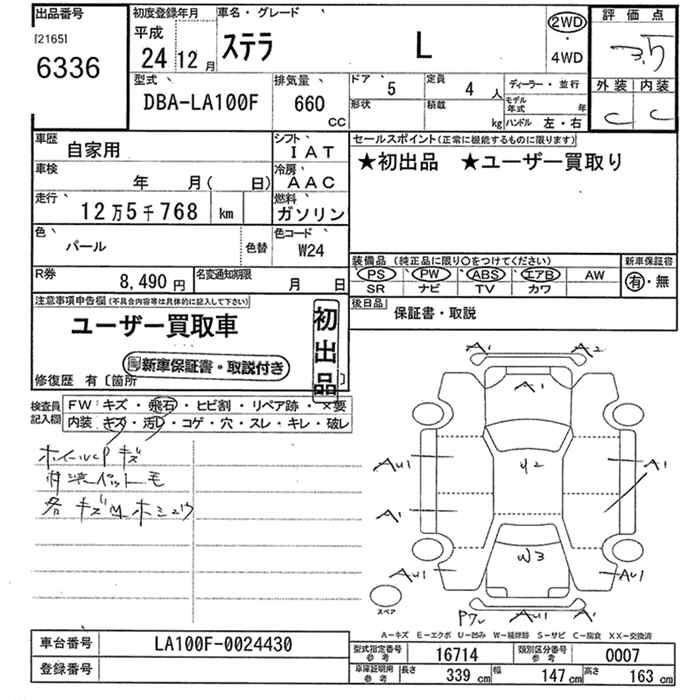 出品番号
[2165]
6336
初度登録年月
平成
24年12月
車名・グレード
ステラ L
2WD
・
4WD
評価点
3.5
外装 内装
C C
型式
DBA-LA100F
排気量
660
CC
ドア 5
定員 4人
形状
積載 kg
ディーラー・並行
モデル年式 年
ハンドル 左・右
車歴 自家用
シフト IAT
車検 年 月( 日)
冷房 AAC
走行 12万5千768 km
燃料 ガソリン
色 パール
色替
色コード W24
R券 8,490円
名変通知期限 月 日
セールスポイント(正常に機能するものに限ります)
★初出品 ★ユーザー買取り
装備品 (純正品に限り○をつけてください)
PS PW ABS エアB AW
SR ナビ TV カワ
新車保証書
有・無
後日品 保証書・取説
注意事項申告欄(不具合内容等は具体的に記入して下さい)
ユーザー買取車
初出品
新車保証書・取説付き
修復歴 有〔箇所 〕
検査員記入欄
FW:キズ・飛石・ヒビ割・リペア跡・×要
内装 キズ・汚レ・コゲ・穴・スレ・キレ・破レ
ホイールCPキズ
各キズ
A1 A2
A1
AU1 U2 A1
A1
W3
AU1 AU1
スペア
AU1 A1
A-キズ E-エクボ U-凹み W-補修跡 S-サビ C-腐食 XX-交換済
車台番号 LA100F-0024430
登録番号
型式指定番号 参考 16714
類別区分番号 参考 0007
車庫証明用 参考 長さ 339cm 幅 147cm 高さ 163cm